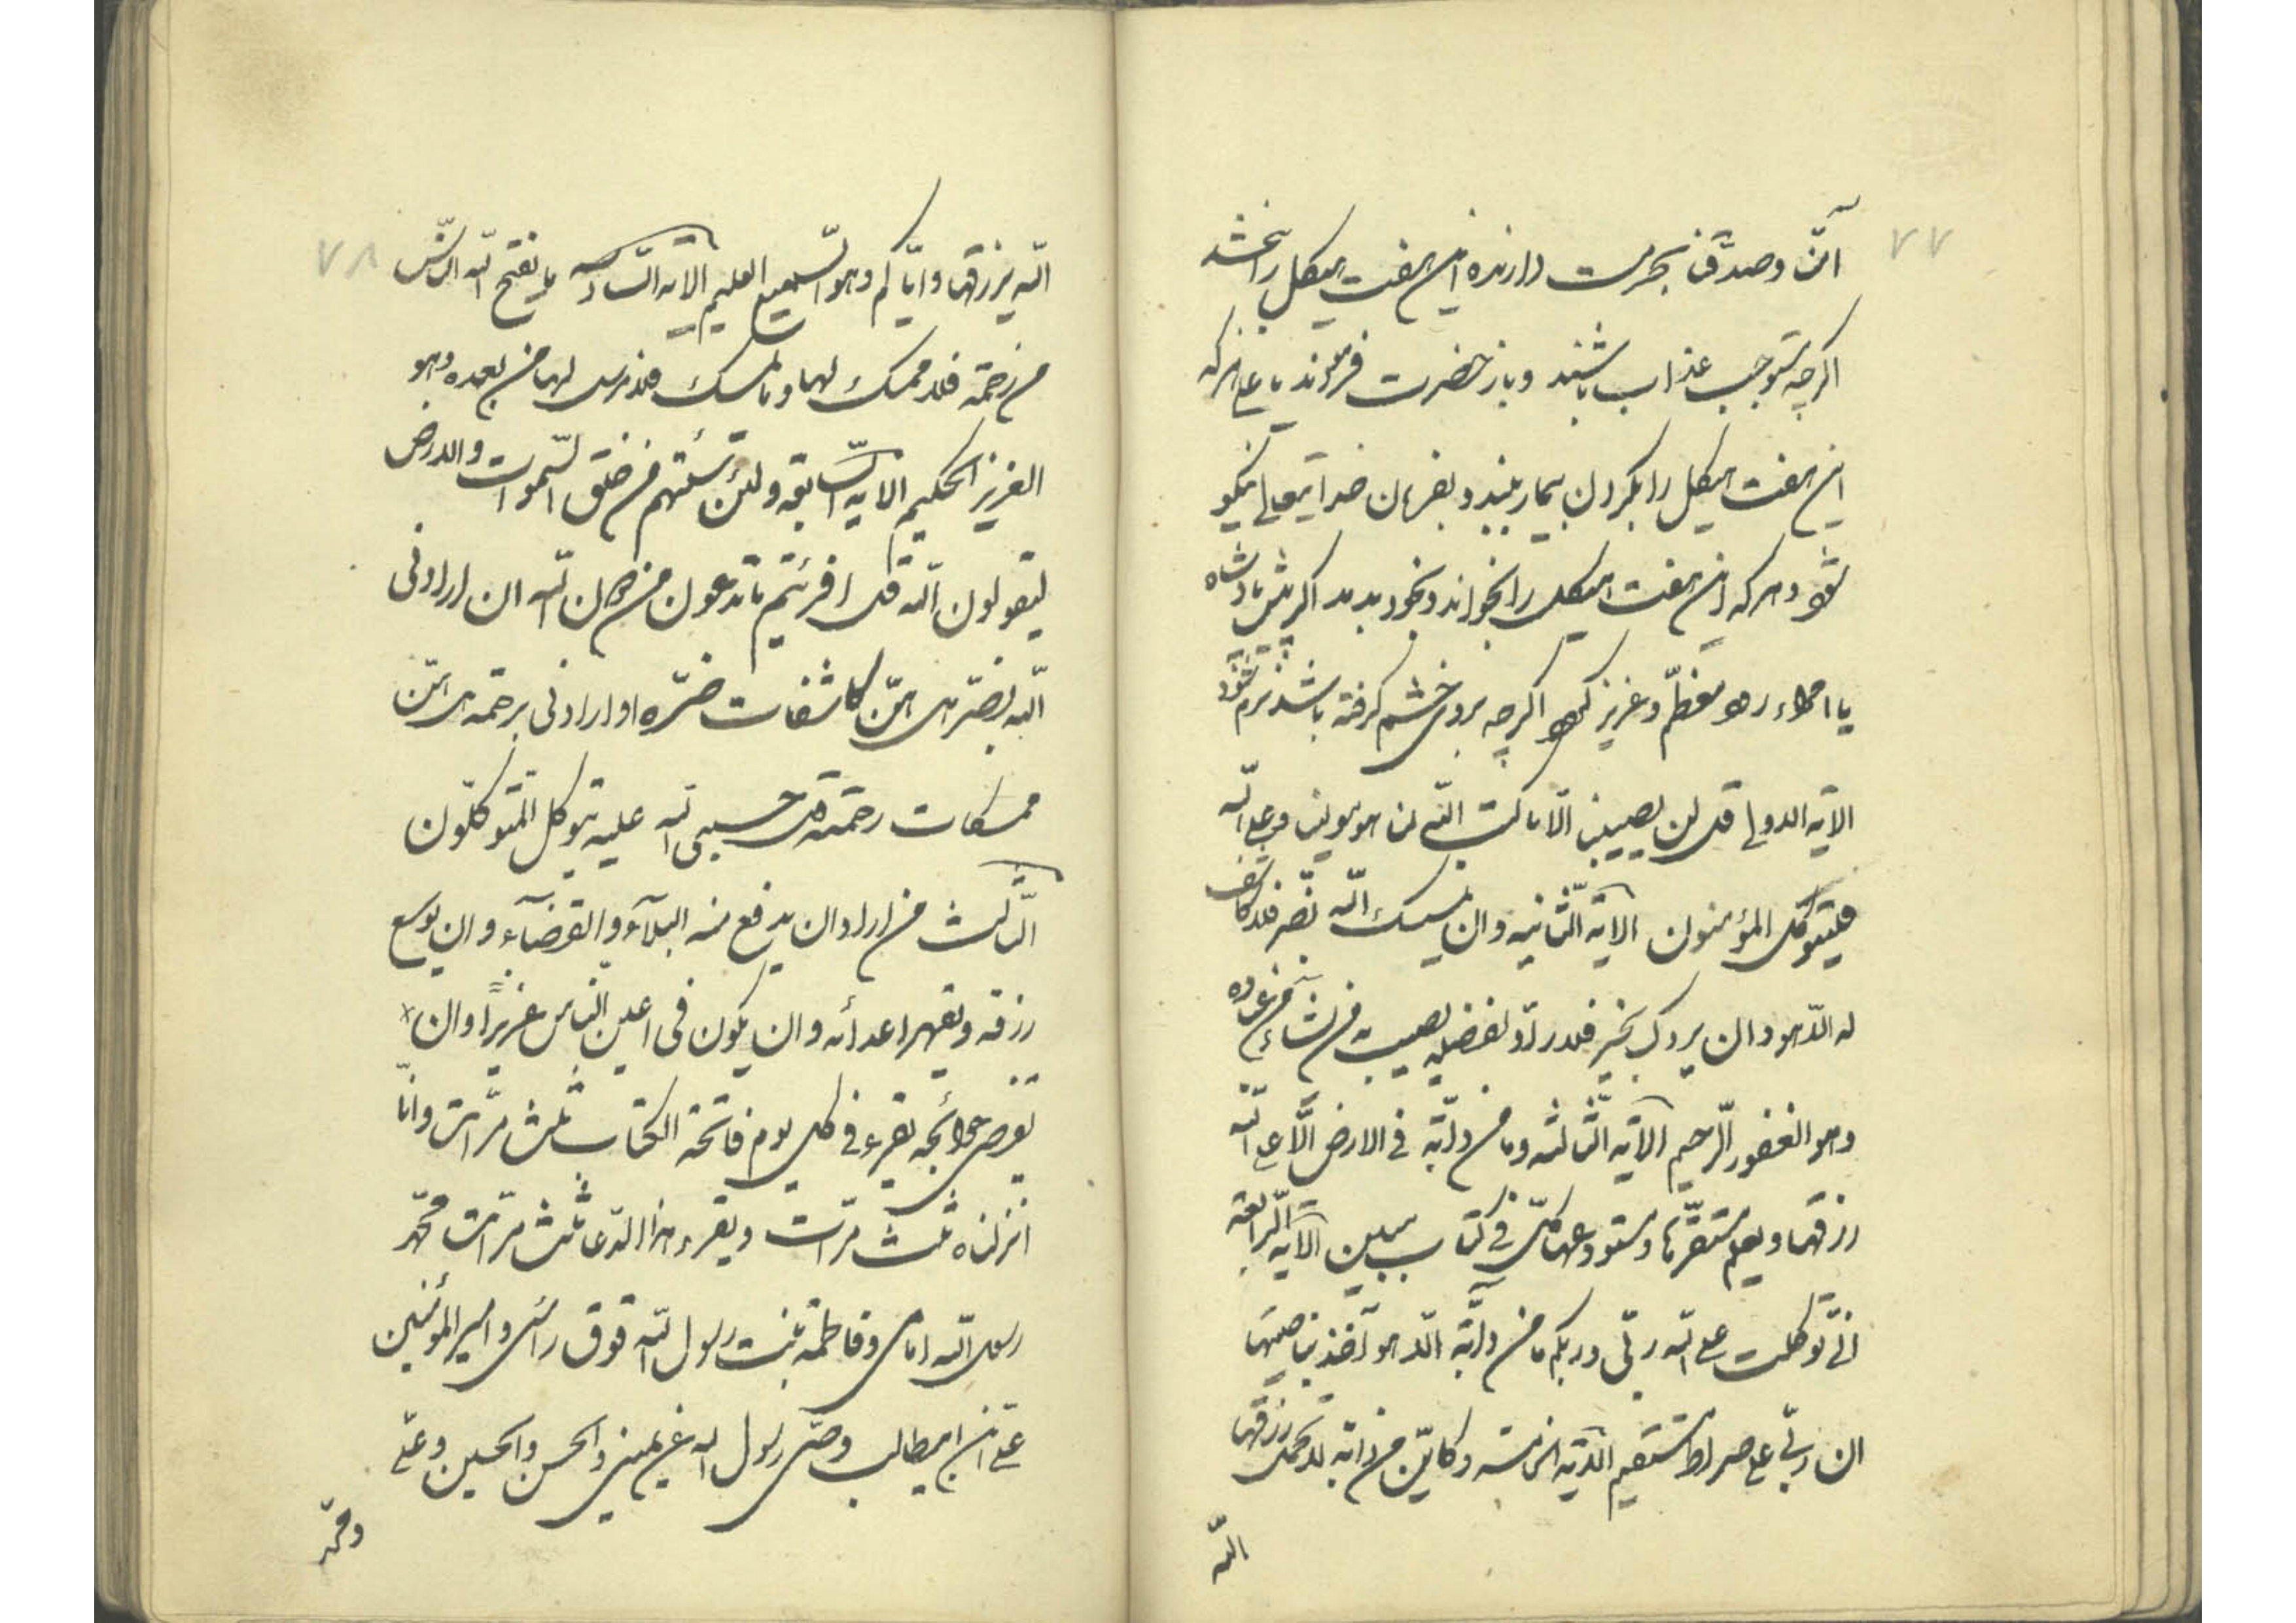 ۷۷
آمنّ و صدّقنا بحرمت دارنده این هفت هیکل را بخشد
اکرچه مستوجب عذاب باشند و باز حضرت فرمودند یا علی هرکه
این هفت هیکل را بکردن بیمار بندد بفرمان خدایتعالی نیکو
شود و هرکه این هفت هیکل را بخواند و بخود بدمد اکر پیش پادشاه
یا امراء رود معظّم و عزیز کردد اکرچه بروی خشم کرفته باشد نرم شود
الآیه الاولی قل لن یصیبنا الّا ما کتب اللّه لنا هو مولینا و علی اللّه
فلیتوکّل المؤمنون الآیه الثّانیه و ان یمسسک اللّه بضرّ فلا کاشف
له الّا هو و ان یردک بخیر فلا رادّ لفضله یصیب به من یشآء من عباده
و هو الغفور الرّحیم الآیه الثّالثه و ما من دابّة فی الارض الّا علی اللّه
رزقها و یعلم مستقرّها و مستودعها کلّ فی کتاب مبین الآیه الرّابعة
انّی توکلت علی اللّه ربّی و ربکم ما من دابّة الّا هو آخذ بناصیتها
ان ربّی علی صراط مستقیم الآیه الخامسه و کایّن من دابه لا تحمل رزقها
اللّه
۷۸
اللّه یرزقها و ایّاکم و هو السّمیع العلیم الآیه السّادسه ما یفتح اللّه للنّاس
من رحمة فلا ممسک لها و ما یمسک فلا مرسل لها من بعده و هو
العزیز الحکیم الآیه السّابعة و لئن سئلتهم من خلق السّموات و الارض
لیقولون اللّه قل افرئیتم ما تدعون من دون اللّه ان ارادنی
اللّه بضرّ هل هنّ کاشفات ضرّه او ارادنی برحمة هل هنّ
ممسکات رحمته قل حسبی اللّه علیه یتوکل المتوکلّون
الثّالث من اراد ان یدفع منه البلآء و القضآء و ان یوسع
رزقه و یقهر اعدائه و ان یکون فی اعین النّاس عزیزاً و ان
یقضی حوائجه یقرء فی کل یوم فاتحة الکتاب ثلث مرّات و انّا
انزلناه ثلث مرّات و یقرء هذا الدّعا ثلث مرّات محمّد
رسول اللّه امامی و فاطمة بنت رسول اللّه فوق رأسی و امیر المؤمنین
علیّ ابن ابیطالب وصّی رسول اللّه عن یمینی و الحسن و الحسین و علیّ
و محمّد